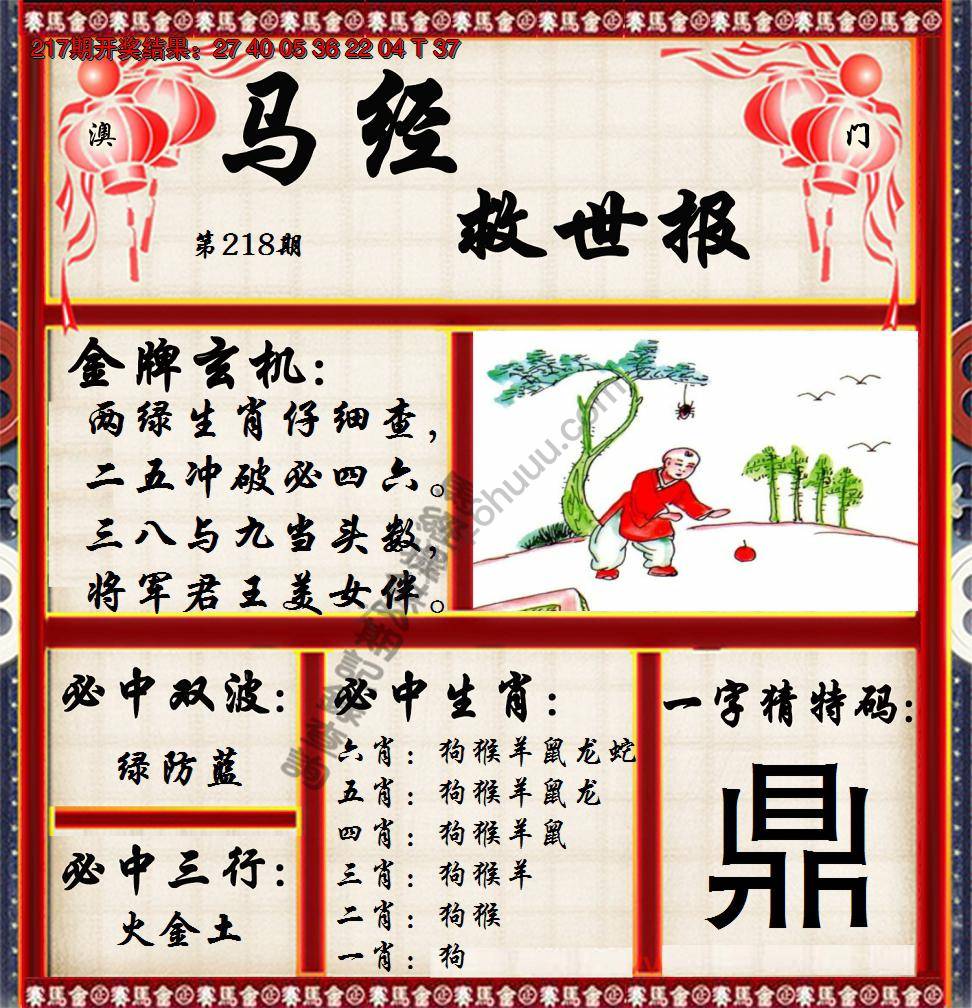 217期开奖结果：27 40 05 36 22 04 T 37
澳
门
马经
救世报
第218期
金牌玄机：
两绿生肖仔细查，
二五冲破必四六。
三八与九当头数，
将军君王美女伴。
必中双波：
绿防蓝
必中三行：
火金土
必中生肖：
六肖：狗猴羊鼠龙蛇
五肖：狗猴羊鼠龙
四肖：狗猴羊鼠
三肖：狗猴羊
二肖：狗猴
一肖：狗
一字猜特码：
鼎